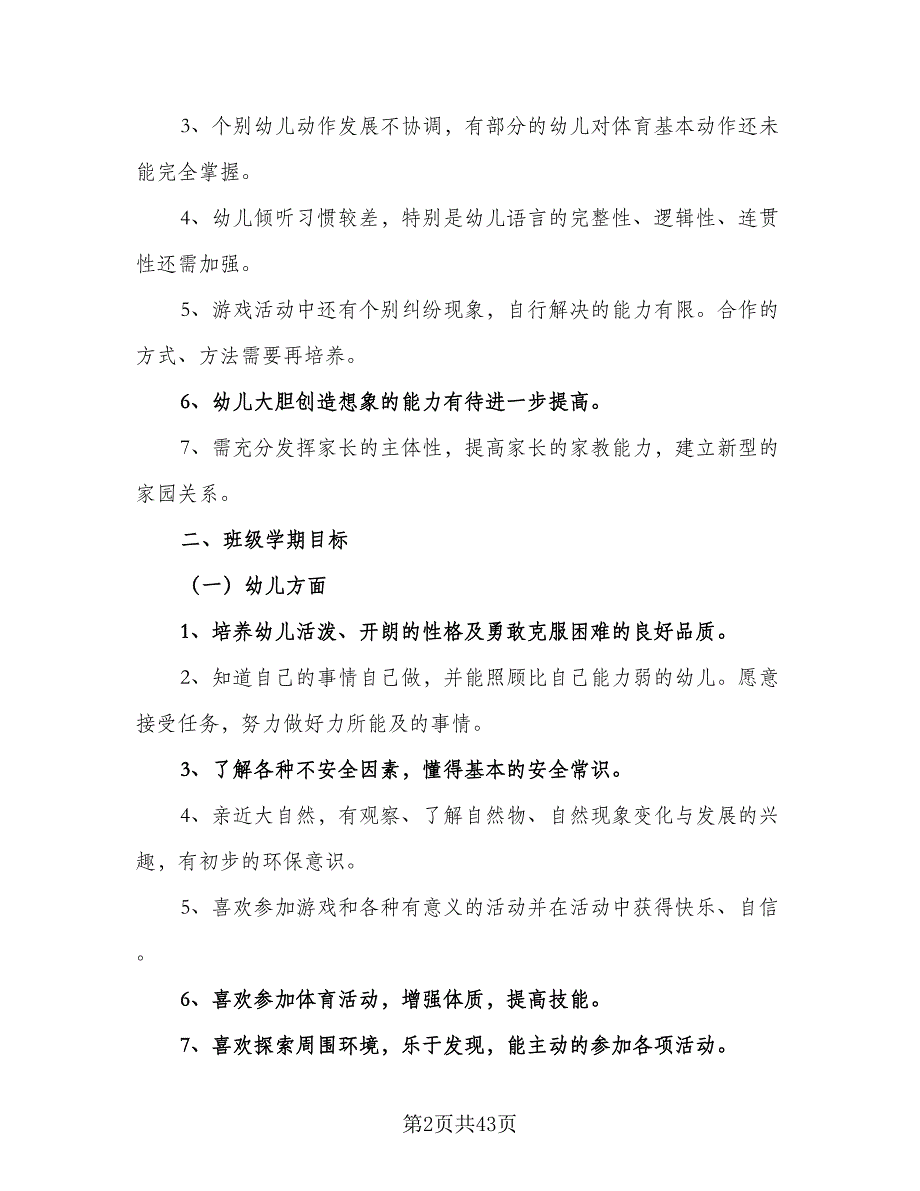 3、个别幼儿动作发展不协调，有部分的幼儿对体育基本动作还未
能完全掌握。
4、幼儿倾听习惯较差，特别是幼儿语言的完整性、逻辑性、连贯
性还需加强。
5、游戏活动中还有个别纠纷现象，自行解决的能力有限。合作的
方式、方法需要再培养。
6、幼儿大胆创造想象的能力有待进一步提高。
7、需充分发挥家长的主体性，提高家长的家教能力，建立新型的
家园关系。
二、班级学期目标
（一）幼儿方面
1、培养幼儿活泼、开朗的性格及勇敢克服困难的良好品质。
2、知道自己的事情自己做，并能照顾比自己能力弱的幼儿。愿意
接受任务，努力做好力所能及的事情。
3、了解各种不安全因素，懂得基本的安全常识。
4、亲近大自然，有观察、了解自然物、自然现象变化与发展的兴
趣，有初步的环保意识。
5、喜欢参加游戏和各种有意义的活动并在活动中获得快乐、自信
。
6、喜欢参加体育活动，增强体质，提高技能。
7、喜欢探索周围环境，乐于发现，能主动的参加各项活动。
第2页共43页